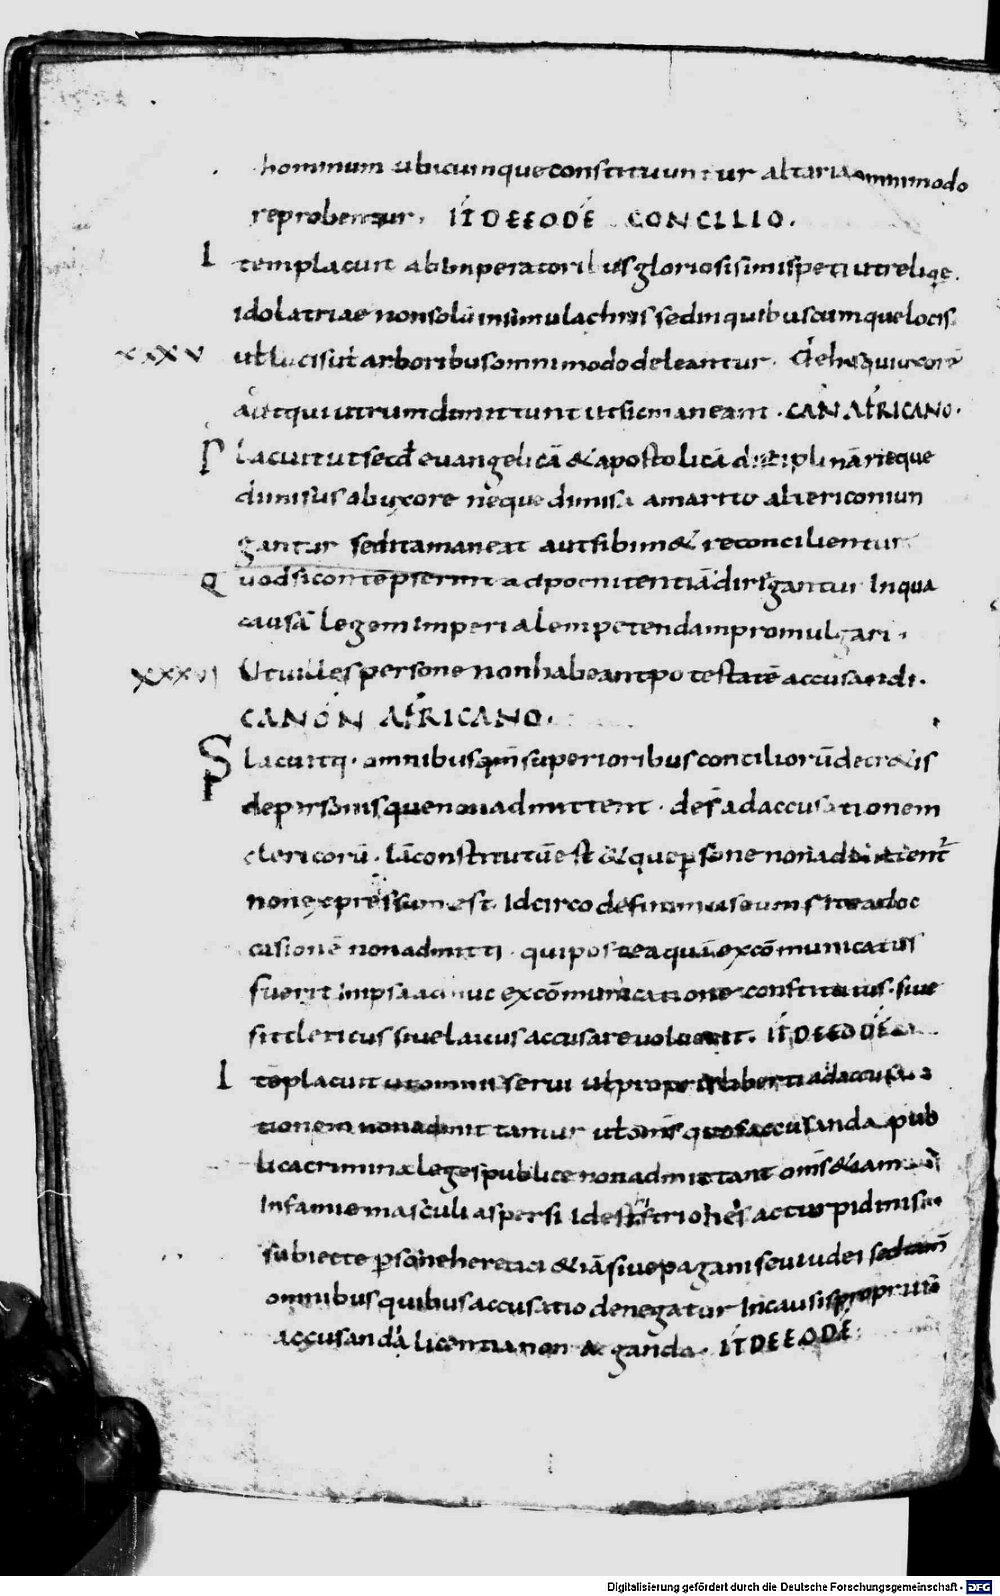 hominum ubicumque constituuntur altaria ommimodo
reprobentur. IT DE EODE CONCILIO.
I templacuit ab imperatorib us gloriosisimis peti ut reliqe.
idolatriae non solu in simulachris sed in quibuscumque locis
XXXV ut lucis ut arboribus ommimodo deleantur. De his qui uxore
aut qui uirum dimittunt ut sic maneant. CAN AFRICANO.
P lacuit ut secd euangelicā & apostolicā disciplinā neque
dimisus ab uxore neque dimisa a marito alteri coniun
gantur sed ita maneat aut sibim& reconcilientur
Q uod si contēpserint ad poenitentiā dirigantur In qua
causā legem imperialem petendam promulgari.
XXXVI Ut uilles persone non habeant potestatē accusandi.
CANON AFRICANO.
P lacuitq. omnibus qm̄ superioribus conciliorū decr&is
de personis que non admittent. des ad accusationem
clericorū. Iā constitutū est & que psone non admittent
non expressum est. Idcirco definimus eum site ad oc
casionē non admitti. qui postea quā excōmunicatus
fuerit In ipsa adhuc excōmunicatione constitutus. siue
sit clericus siue laicus accusare uoluerit. IT DE EODE
I tē placuit ut omni serui ut proprii liberti ad accusa
tionem non admittantur ut om̄s quos accusanda pub
lica crimina leges publice non admittant om̄s &iam
Infamie masculi aspersi Id est istriones ac turpidinis
subiecte psone heretici &iā siue pagani seu iudei sed tam̄
omnibus quibus accusatio denegatur In causis propriis
accusandi licentia non & ganda. IT DE EODE:
Digitalisierung gefördert durch die Deutsche Forschungsgemeinschaft - DFG